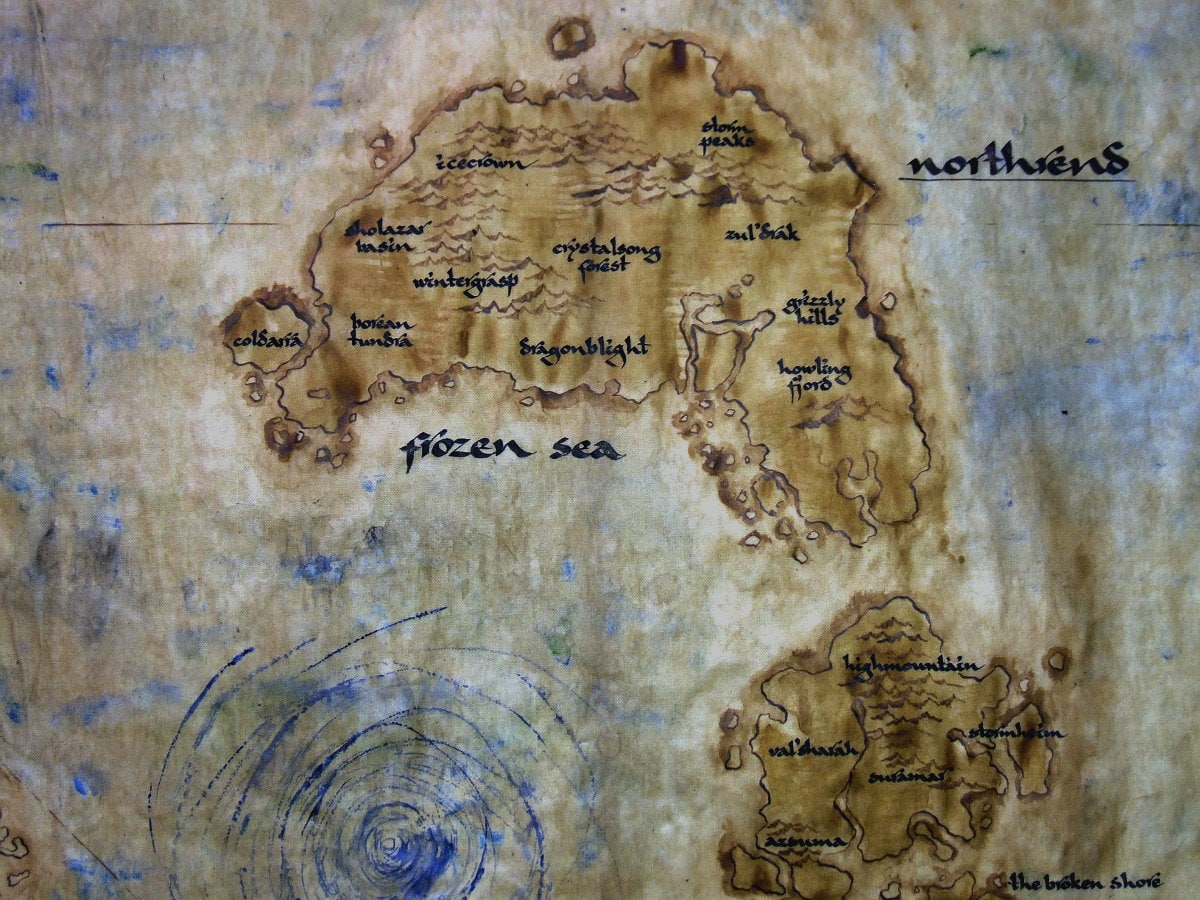 storm
peaks
icecrown
northrend
sholazar
basin
zul'drak
crystalsong
forest
wintergrasp
grizzly
hills
coldarra
borean
tundra
dragonblight
howling
fjord
frozen sea
highmountain
stormheim
val'sharah
suramar
azsuna
the broken shore